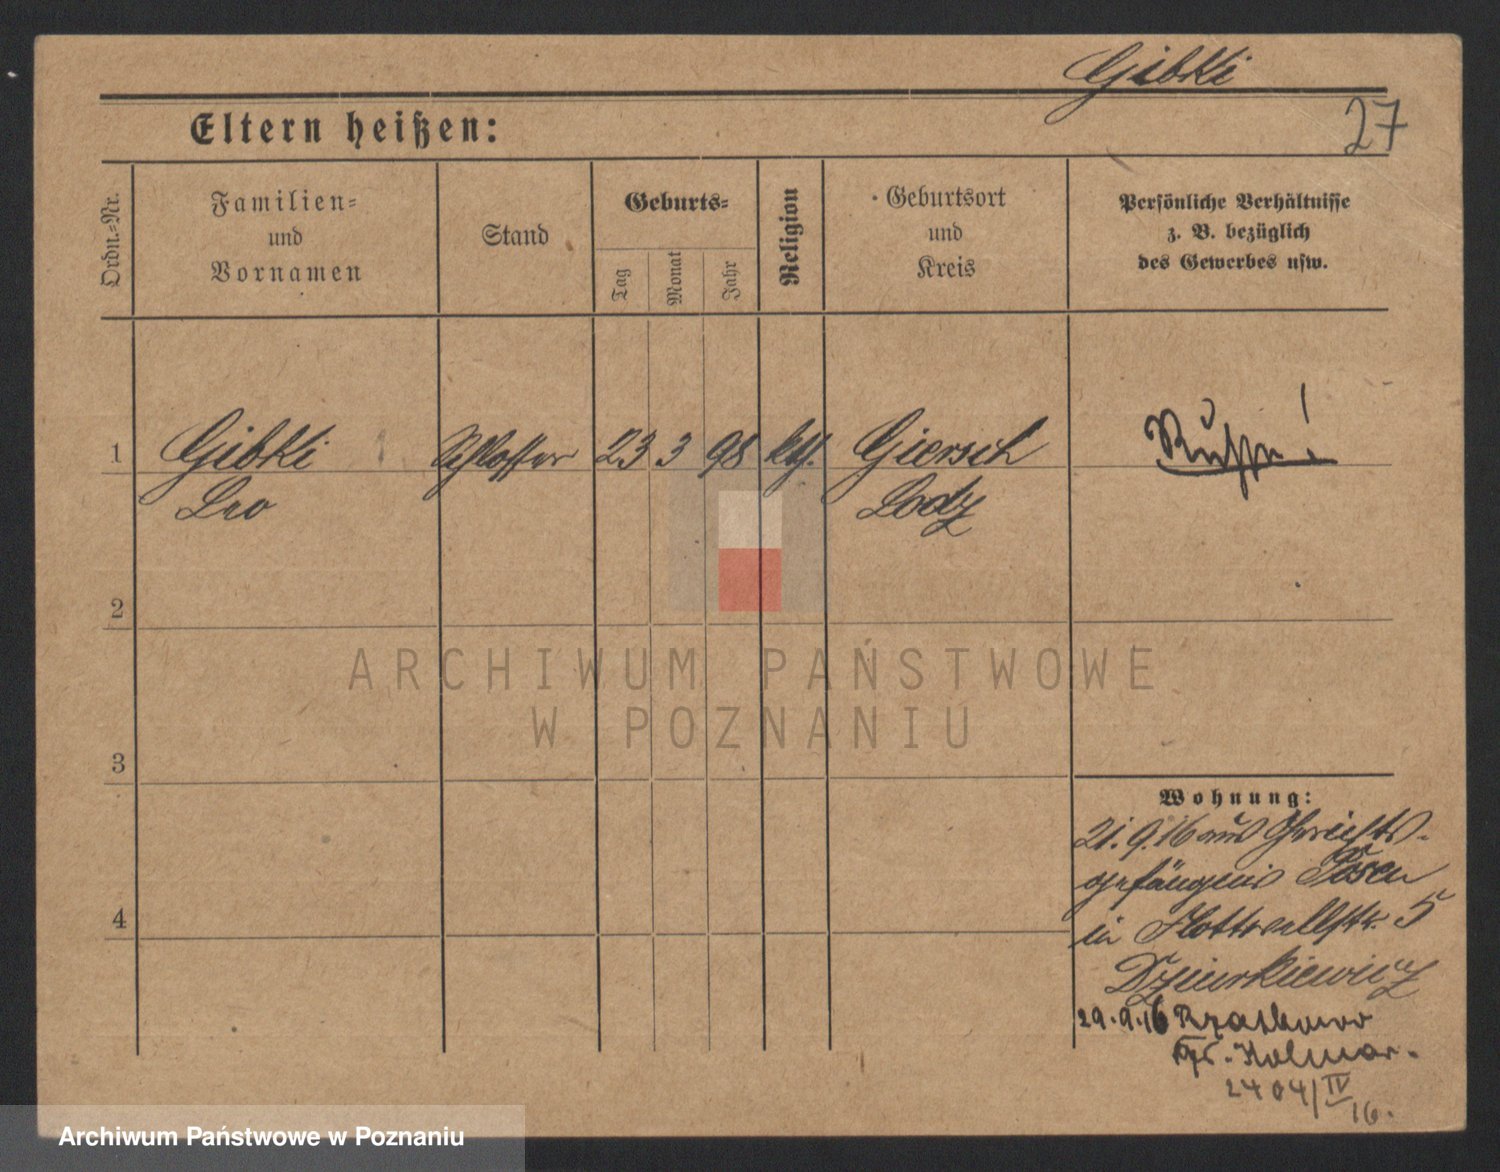 Gibki
27
Eltern heißen:
Ordn.-Nr.
Familien=
und
Vornamen
Stand
Geburts=
Tag
Monat
Jahr
Religion
Geburtsort
und
Kreis
Persönliche Verhältnisse
z. B. bezüglich
des Gewerbes usw.
1 Gibki Schlosser 23 3 98 kth. Giersch Russe!
Leo Lodz
2
3
4
Wohnung:
21.9.16 aus Gerichts-
gefängnis Posen
in Flottwellstr. 5
Dziurkiewicz
29.9.16 Rzadkowo
Krs. Kolmar.
2404/IV
16.
ARCHIWUM PAŃSTWOWE
W POZNANIU
Archiwum Państwowe w Poznaniu